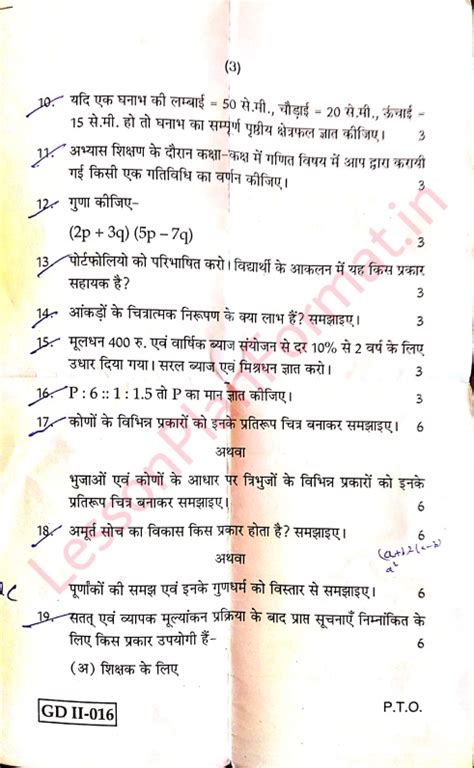 (3)
10. यदि एक घनाभ की लम्बाई = 50 से.मी., चौड़ाई = 20 से.मी., ऊंचाई =
15 से.मी. हो तो घनाभ का सम्पूर्ण पृष्ठीय क्षेत्रफल ज्ञात कीजिए। 3
11. अभ्यास शिक्षण के दौरान कक्षा-कक्ष में गणित विषय में आप द्वारा करायी
गई किसी एक गतिविधि का वर्णन कीजिए। 3
12. गुणा कीजिए-
(2p + 3q) (5p – 7q) 3
13. पोर्टफोलियो को परिभाषित करो। विद्यार्थी के आकलन में यह किस प्रकार
सहायक है? 3
14. आंकड़ों के चित्रात्मक निरूपण के क्या लाभ हैं? समझाइए। 3
15. मूलधन 400 रु. एवं वार्षिक ब्याज संयोजन से दर 10% से 2 वर्ष के लिए
उधार दिया गया। सरल ब्याज एवं मिश्रधन ज्ञात करो। 3
16. P : 6 :: 1 : 1.5 तो P का मान ज्ञात कीजिए। 3
17. कोणों के विभिन्न प्रकारों को इनके प्रतिरूप चित्र बनाकर समझाइए। 6
अथवा
भुजाओं एवं कोणों के आधार पर त्रिभुजों के विभिन्न प्रकारों को इनके
प्रतिरूप चित्र बनाकर समझाइए। 6
18. अमूर्त सोच का विकास किस प्रकार होता है? समझाइए। 6
अथवा
पूर्णांकों की समझ एवं इनके गुणधर्म को विस्तार से समझाइए। 6
19. सतत् एवं व्यापक मूल्यांकन प्रक्रिया के बाद प्राप्त सूचनाएँ निम्नांकित के
लिए किस प्रकार उपयोगी हैं- 6
(अ) शिक्षक के लिए
GD II-016
P.T.O.
LessonPlanFormat.in